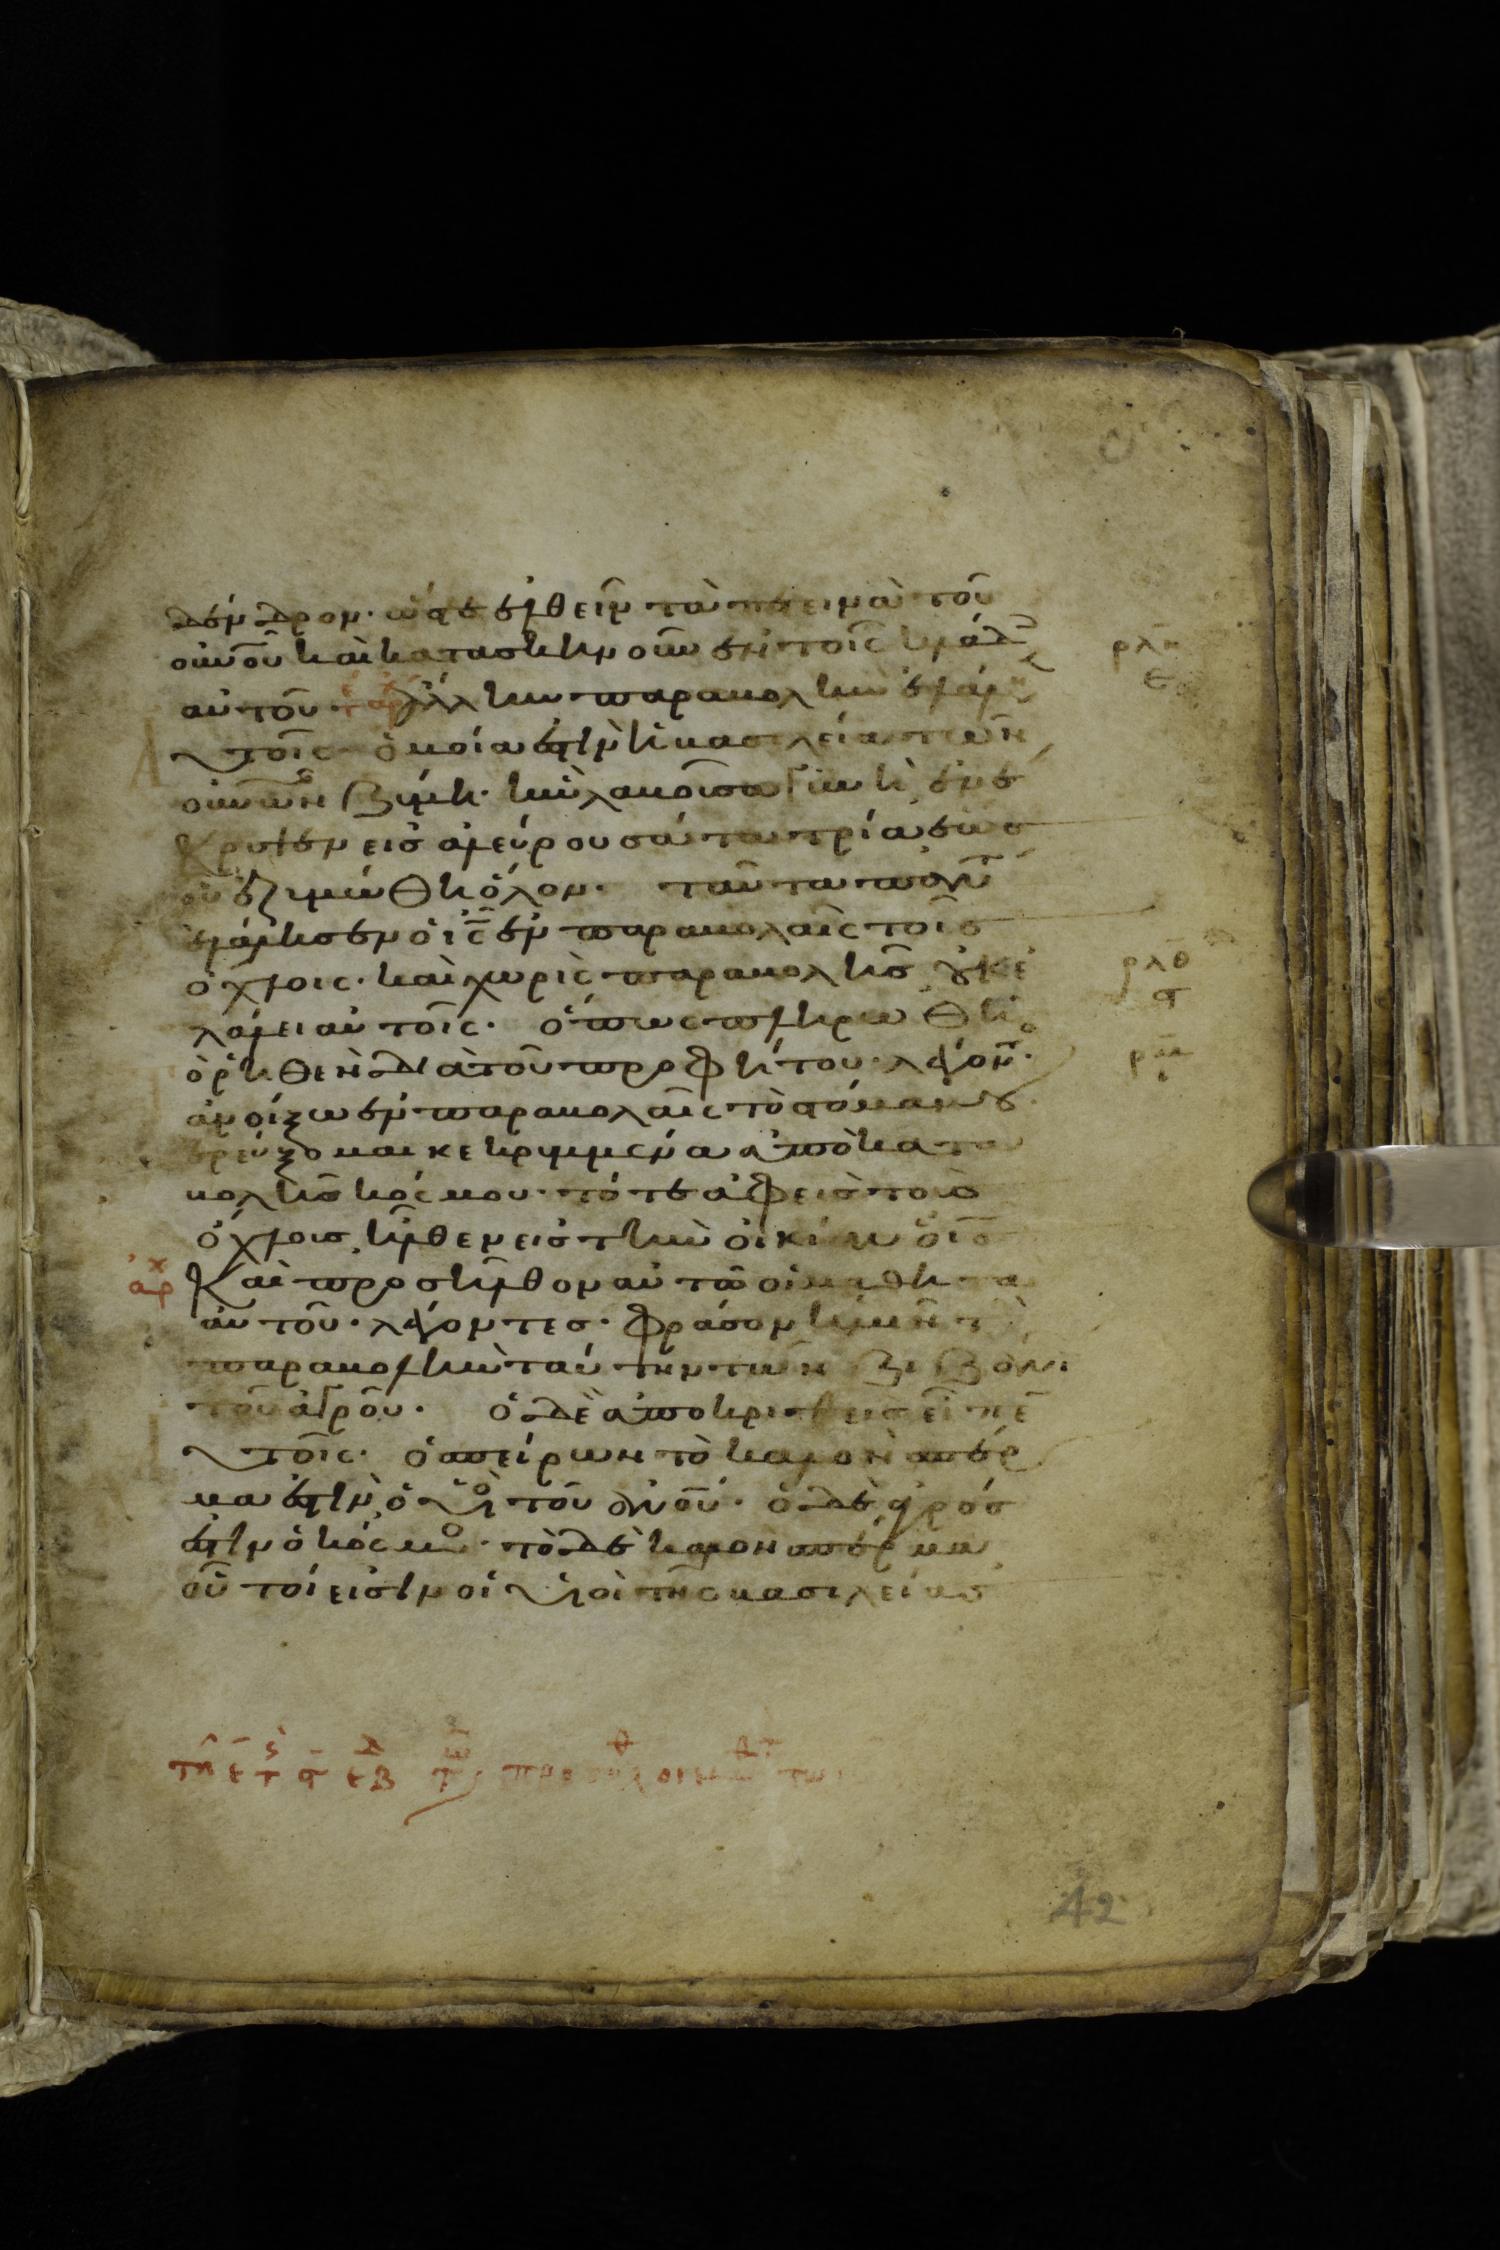 δένδρον· ὥστε ἐλθεῖν τὰ πετεινὰ τοῦ
οὐνοῦ καὶ κατασκηνοῦν ἐν τοῖς κλάδ
αὐτοῦ· ἄλλην παραβολὴν ἐλάλη
ρλη
ε
αυτοῖς· ὁμοία ἐστὶν ἡ βασιλεία τῶν
οὐνῶν ζύμη· ἣν λαβοῦσα γυνὴ ἐνέ
κρυψεν εἰς ἀλεύρου σάτα τρία ἕως
οὗ ἐζυμώθη ὅλον· ταῦτα πάντ
ἐλάλησεν ὁ ις ἐν παραβολαῖς τοῖς
ὄχλοις· καὶ χωρὶς παραβολῆς οὐκ ἐ
ρλθ
ϛ
λάλει αὐτοῖς· ὅπως πληρωθῆ
τὸ ῥηθὲν διὰ τοῦ προφήτου λέγον·
ρμ
ἀνοίξω ἐν παραβολαῖς τὸ στόμα μου
ἐρεύξομαι κεκρυμμένα ἀπὸ κατα
βολῆς κόσμου· τότε ἀφεὶς τοὺς
ὄχλους ἦλθεν εἰς τὴν οἰκίαν ὁ ις
αρχ
Καὶ προσῆλθον αὐτῶ οἱ μαθητα
αὐτοῦ· λέγοντες· φράσον ἡμῖν τὴ
παραβολὴν ταύτην τῶν ζιζανι
τοῦ ἀγροῦ· ὁ δὲ ἀποκριθεὶς εἶπε
αυτοῖς· ὁ σπείρων τὸ καλὸν σπέρ
μα ἐστὶν ὁ υἱὸ τοῦ ανου· ὁ δὲ ἀγρός
ἐστιν ὁ κόσμο· τὸ δὲ καλὸν σπέρμα
οὗτοί εἰσιν οἱ υἱοὶ τῆς βασιλείας
42